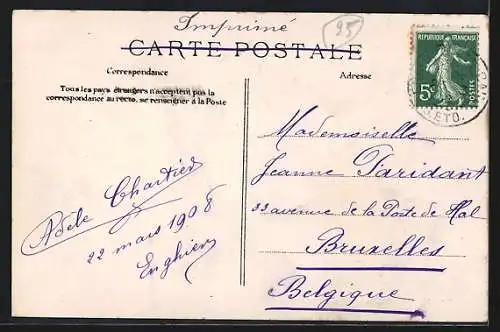 Imprimé
95
CARTE POSTALE
Correspondance
Adresse
Tous les pays étrangers n'acceptent pas la
correspondance au recto, se renseigner à la Poste
RÉPUBLIQUE FRANÇAISE
5c
POSTES
ETO.
Mademoiselle
Jeanne Faridant
33 avenue de la Porte de Hal
Bruxelles
Belgique
Adèle Chartier
22 mars 1908
Enghien